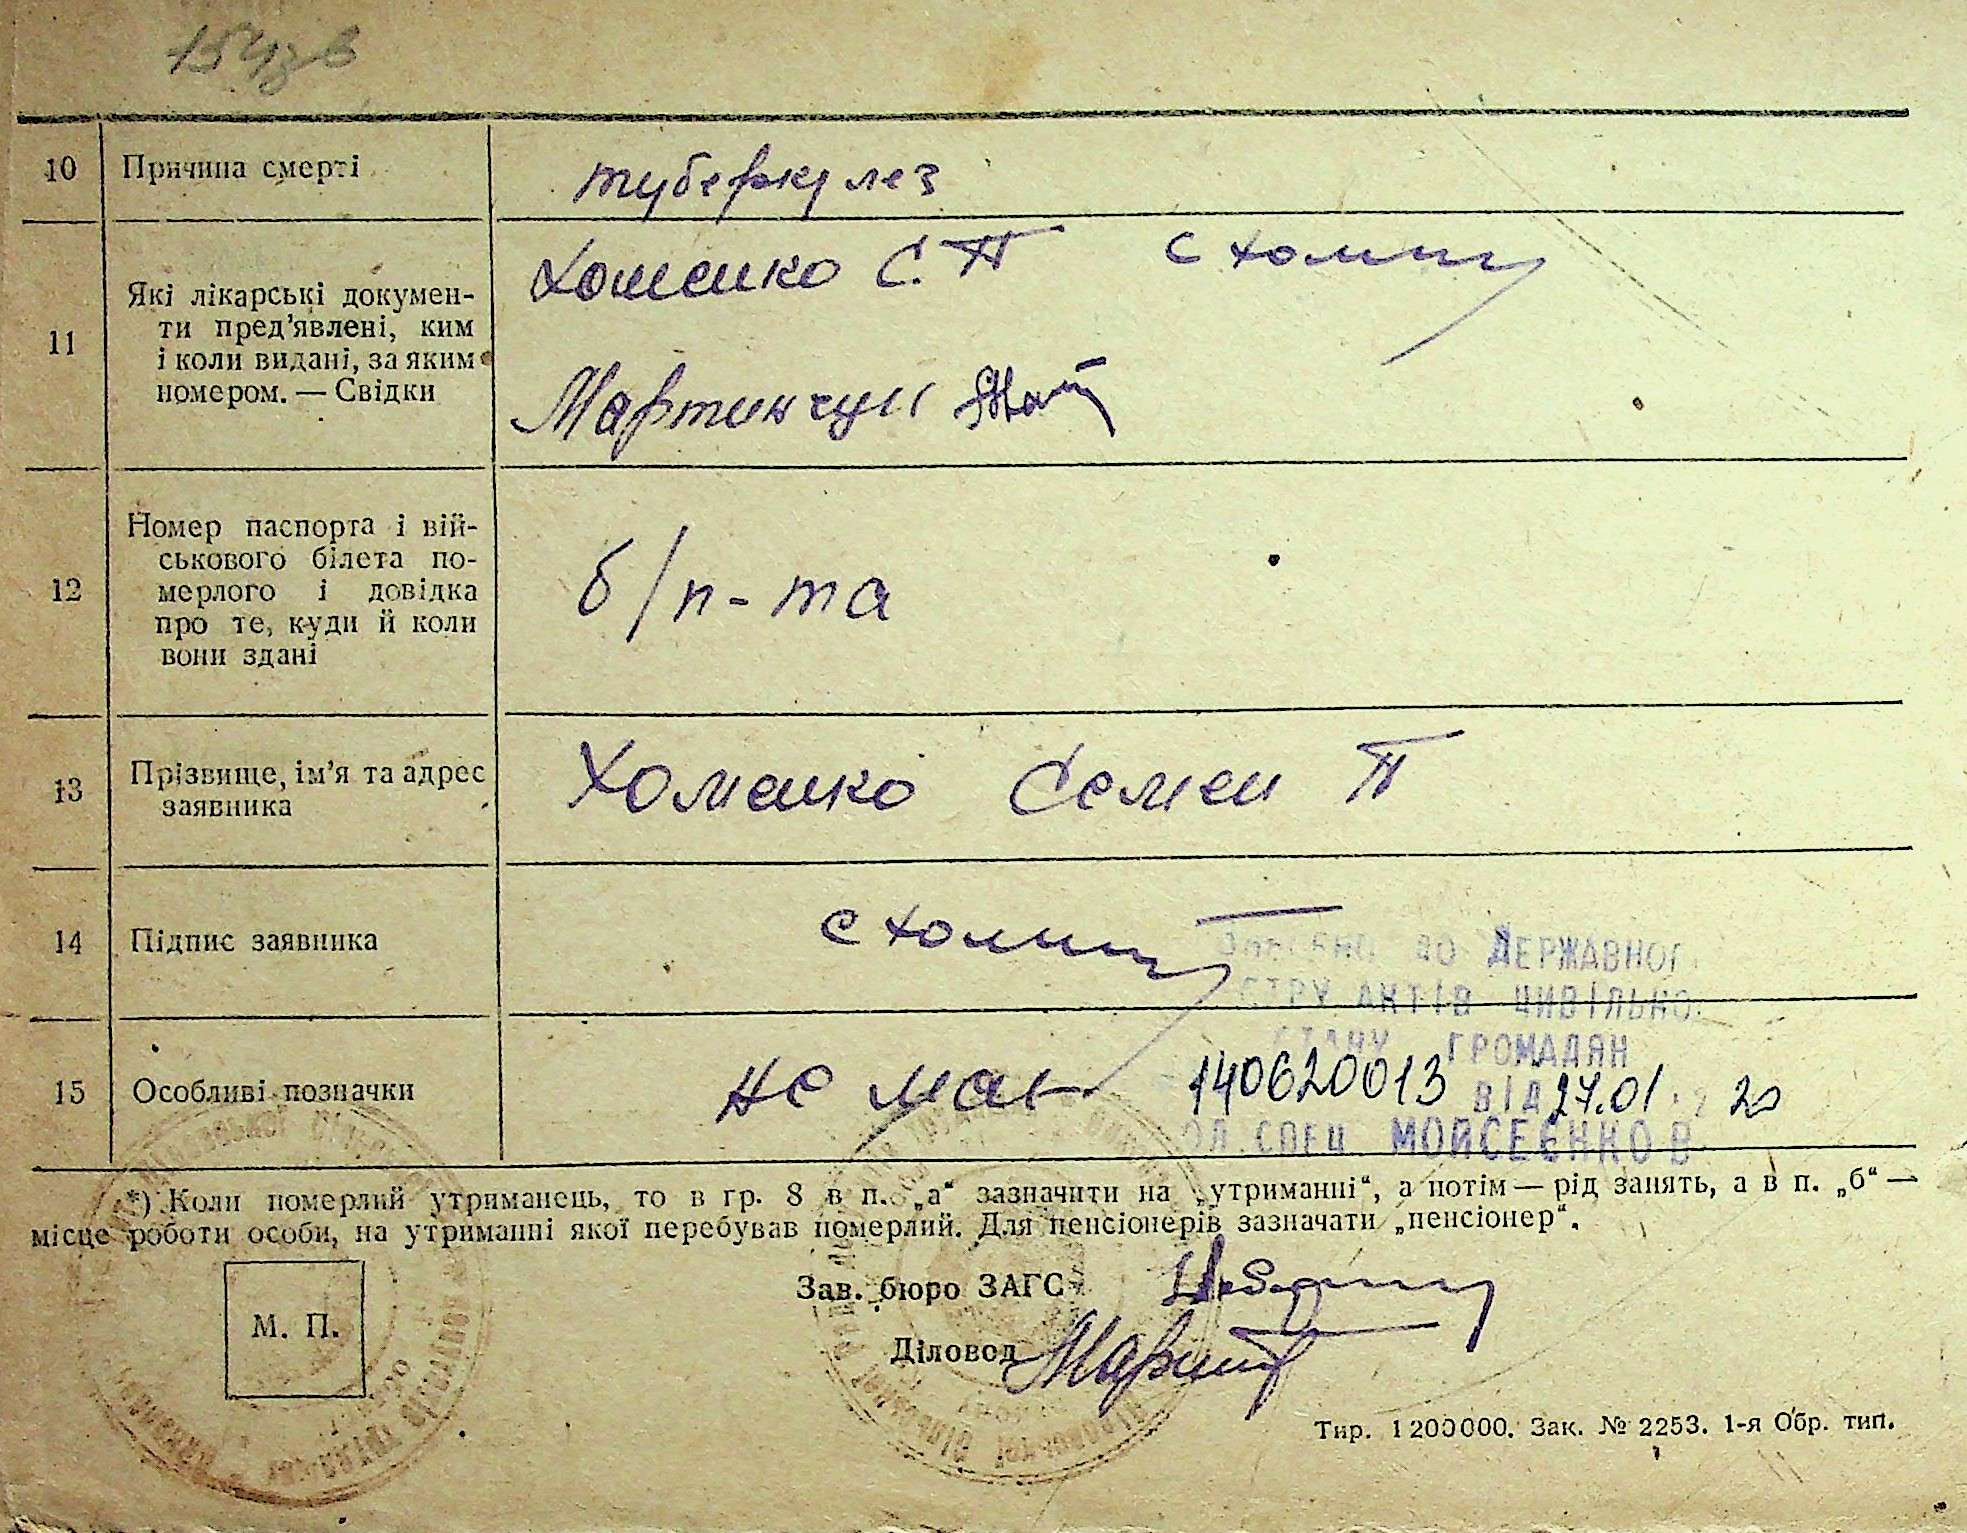 10 Причина смерті туберкулез
11 Які лікарські докумен-
ти пред’явлені, ким
і коли видані, за яким
номером. — Свідки
Хоменко С. П
Мартинчук
12 Номер паспорта і вій-
ськового білета по-
мерлого і довідка
про те, куди й коли
вони здані
б/п-та
13 Прізвище, ім’я та адрес
заявника
Хоменко Семен П
14 Підпис заявника
ДЕРЖАВНОГ
АКТІВ ЦИВІЛЬНО
ГРОМАДЯН
15 Особливі позначки не має 140620013 ВІД 27.01 20
СПЕЦ МОЙСЕЄНКО В
*) Коли померлий утриманець, то в гр. 8 в п. „а“ зазначити на „утриманні“, а потім — рід занять, а в п. „б“ —
місце роботи особи, на утриманні якої перебував померлий. Для пенсіонерів зазначати „пенсіонер“.
М. П.
Зав. бюро ЗАГС
Діловод
Тир. 1200000. Зак. № 2253. 1-я Обр. тип.